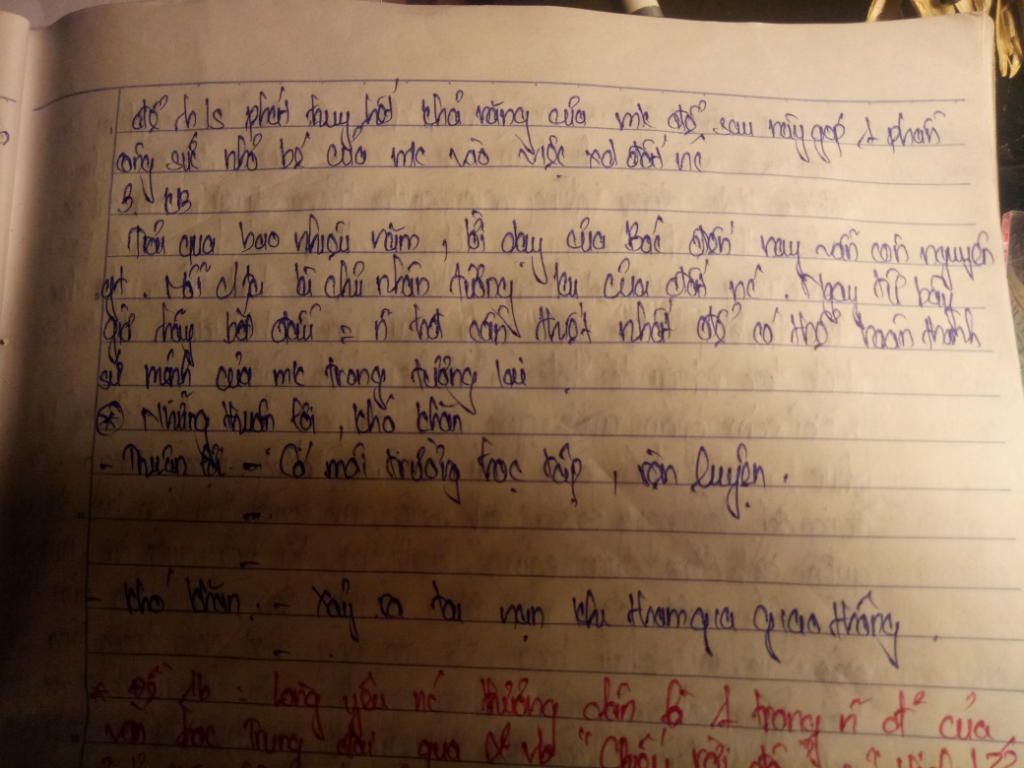 để hs phát huy hết khả năng của mk để sau này góp 1 phần
công sức nhỏ bé của mk vào việc xd đất nc
3. KB
Trải qua bao nhiêu năm, lời dạy của Bác đến nay vẫn còn nguyên
gt. Mỗi chta là chủ nhân tương lai của đất nc. Ngay từ bây
giờ hãy bắt đầu = n thật nhất để có thể hoàn thành
sứ mệnh của mk trong tương lai.
* Những thuận lợi, khó khăn
- Thuận lợi - Có môi trường học tập, rèn luyện.
-
-
- Khó khăn. - Xảy ra tai nạn khi tham gia giao thông.
-
* Đề : Lòng yêu nc thương dân là 1 trong n của
văn học Trung đại qua "Chiếu dời đô"